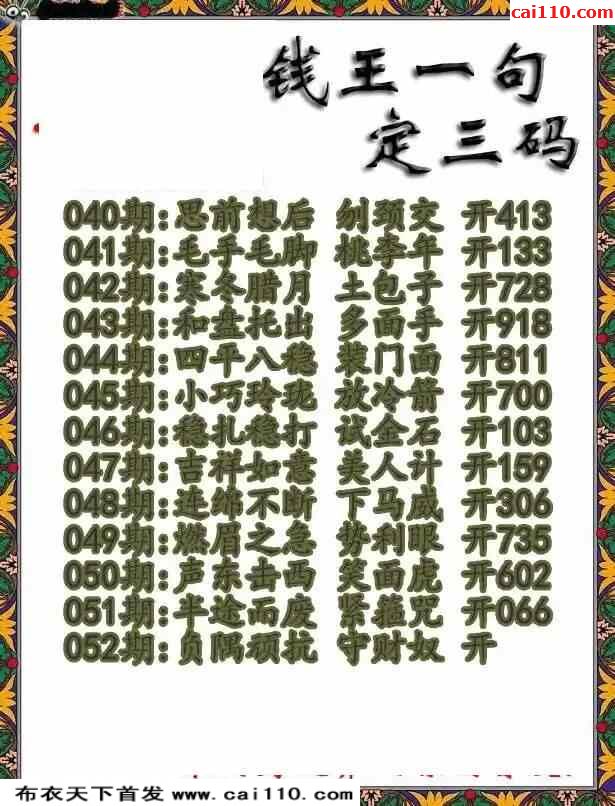 cai110.com
钱王一句
定三码
040期:思前想后 刎颈交 开413
041期:毛手毛脚 桃李年 开133
042期:寒冬腊月 土包子 开728
043期:和盘托出 多面手 开918
044期:四平八稳 装门面 开811
045期:小巧玲珑 放冷箭 开700
046期:稳扎稳打 试金石 开103
047期:吉祥如意 美人计 开159
048期:连绵不断 下马威 开306
049期:燃眉之急 势利眼 开735
050期:声东击西 笑面虎 开602
051期:半途而废 紧箍咒 开066
052期:负隅顽抗 守财奴 开
布衣天下首发 www.cai110.com